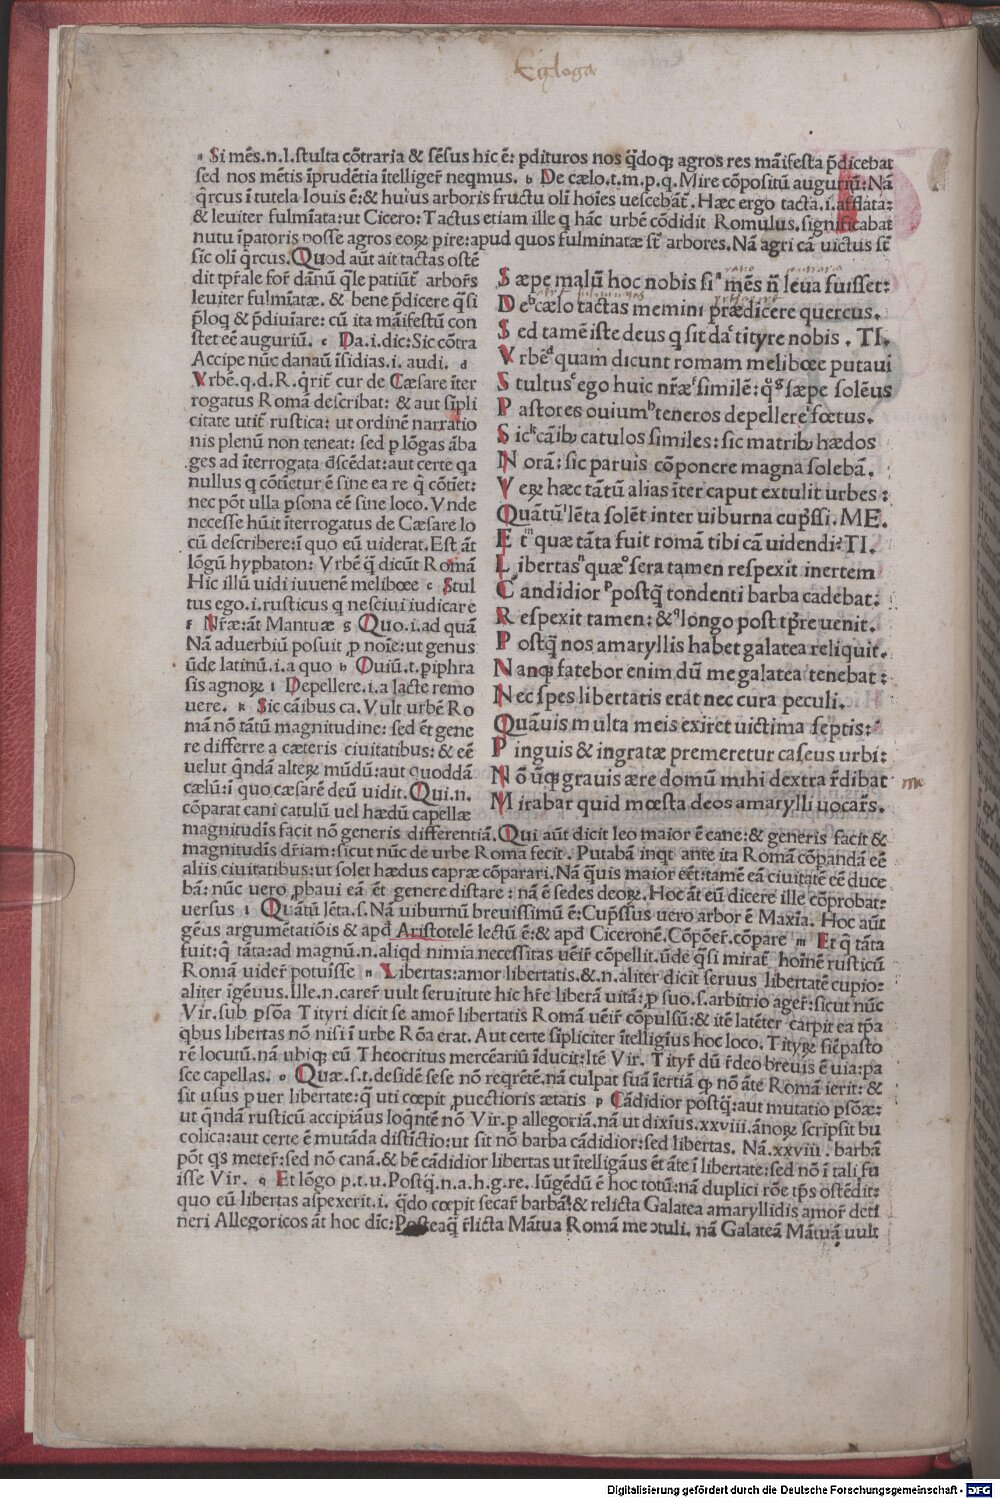 Egloga
a Si mẽs.n.l.stulta cõtraria & sẽsus hic ẽ: pdituros nos q̃doqꝫ agros res mãifesta p̃dicebat
sed nos mẽtis ĩprudẽtia ĩtelliger̃ neqmus. b De cælo.t.m.p.q. Mire cõpositũ auguriũ: Nã
q̃rcus ĩ tutela Iouis ẽ: & huius arboris fructu oli hoĩes uescebãt̃. Hæc ergo tacta.i.afflata:
& leuiter fulmĩata: ut Cicero: Tactus etiam ille q hãc urbẽ cõdidit Romulus. significabat
nutu ĩpatoris posse agros eoꝝ pire: apud quos fulminatæ st̃ arbores. Nã agri cã uictus st̃
sic oli q̃rcus. Quod aũt ait tactas ostẽ
dit tpr̃ale for̃ dãnũ q̃le patiũt̃ arbor̃s
leuiter fulmĩatæ. & bene p̃dicere q̃si
p̃loq & p̃diuĩare: cũ ita mãifestũ con
stet eẽ auguriũ. c Da.i.dic: Sic cõtra
Accipe nũc danaũ ĩsidias.i.audi. d
Vrbẽ.q.d.R.q̃rit̃ cur de Cæsare ĩter
rogatus Romã describat: & aut sĩpli
citate utit̃ rustica: ut ordinẽ narratio
nis plenũ non teneat: sed p lõgas ãba
ges ad ĩterrogata d̃scẽdat: aut certe qa
nullus q cõtĩetur ẽ sine ea re q̃ cõtĩet:
nec põt ulla psona eẽ sine loco. Vnde
necesse hũit ĩterrogatus de Cæsare lo
cũ describere: ĩ quo eũ uiderat. Est ãt
lõgũ hypbaton: Vrbẽ q̃ dicũt Romã
Hic illũ uidi iuuenẽ melibœe e Stul
tus ego.i.rusticus q nesciui iudicare
f Nr̃æ: ãt Mantuæ g Quo.i.ad quã
Nã aduerbiũ posuit ꝓ noĩe: ut genus
ũde latinũ.i.a quo h Ouiũ.t.piphra
sis agnoꝝ i Depellere.i.a lacte remo
uere. k Sic cãibus ca. Vult urbẽ Ro
mã nõ tãtũ magnitudine: sed ẽt gene
re differre a cæteris ciuitatibus: & eẽ
uelut q̃ndã alteꝝ mũdũ: aut quoddã
cælũ: i quo cæsarẽ deũ uidit. Qui.n.
cõparat cani catulũ uel hædũ capellæ
Sæpe malũ hoc nobis si mẽs ñ leua fuisset:
De cælo tactas memini prædicere quercus.
Sed tamẽ iste deus q sit da tityre nobis. TI.
Vrbẽ quam dicunt romam melibœe putaui
Stultus ego huic nr̃æ similẽ: q̃ sæpe solẽus
Pastores ouium teneros depellere fœtus.
Sic cãibꝰ catulos similes: sic matribꝰ hædos
Norã: sic paruis cõponere magna solebã.
Veꝝ hæc tãtũ alias ĩter caput extulit urbes:
Quãtũ lẽta solẽt inter uiburna cup̃ssi. ME.
Et quæ tãta fuit romã tibi cã uidendi: TI.
Libertas quæ sera tamen respexit inertem
Candidior postq̃ tondenti barba cadebat:
Respexit tamen: & longo post tp̃re uenit.
Postq̃ nos amaryllis habet galatea reliquit.
Nanqꝫ fatebor enim dũ me galatea tenebat:
Nec spes libertatis erat nec cura peculi.
Quãuis multa meis exiret uictima septis:
Pinguis & ingratæ premeretur caseus urbi:
Nõ ũqꝫ grauis ære domũ mihi dextra r̃dibat
Mirabar quid mœsta deos amarylli uocar̃s.
magnitudĩs facit nõ generis differentiã. Qui aũt dicit leo maior ẽ cane: & generis facit &
magnitudĩs dr̃iam: sicut nũc de urbe Roma fecit. Putabã inqt ante ita Romã cõpandã eẽ
aliis ciuitatibus: ut solet hædus capræ cõparari. Nã q̃uis maior eẽt: tamẽ eã ciuitatẽ eẽ duce
bã: nũc uero ꝓbaui eã ẽt genere distare: nã ẽ sedes deoꝝ. Hoc ãt eũ dicere ille cõprobat:
uersus l Quãtũ lẽta.s. Nã uiburnũ breuissimũ ẽ: Cup̃ssus uero arbor ẽ Maxĩa. Hoc aũt
gẽus argumẽtatiõis & apd̃ Aristotelẽ lectũ ẽ: & apd̃ Ciceronẽ. Cõpõer̃. cõpare m Et q̃ tãta
fuit: q̃ tãta: ad magnũ.n.aliqd nimia necessitas uẽir̃ cõpellit. ũde q̃si mirat̃ hoĩnẽ rusticũ
Romã uider̃ potuisse n Libertas: amor libertatis. &.n.aliter dicit seruus libertatẽ cupio:
aliter ĩgẽuus. Ille.n.carer̃ uult seruitute hic hr̃e liberã uitã: ꝓ suo.s.arbitrio ager̃: sicut nũc
Vir. sub psõa Tityri dicit se amor̃ libertatis Romã uẽir̃ cõpulsũ: & itẽ latẽter carpit ea tp̃a
q̃bus libertas nõ nisi ĩ urbe Rõa erat. Aut certe sĩpliciter ĩtelligĩus hoc loco. Tityꝝ siẽ pasto
rẽ locutũ. nã ubiqꝫ eũ Theocritus mercẽariũ ĩducit: Itẽ Vir. Tityr̃ dũ r̃deo breuis ẽ uia: pa
sce capellas. o Quæ.s.t. desidẽ sese nõ reqrẽtẽ. nã culpat suã ĩertiã qꝫ nõ ãte Romã ierit: &
sit usus puer libertate: q̃ uti cœpit ꝓuectioris ætatis p Cãdidior postq̃: aut mutatio psõæ:
ut q̃ndã rusticũ accipiãus loq̃ntẽ nõ Vir. p allegoriã. nã ut dixĩus. xxviii. ãnoꝝ scripsit bu
colica: aut certe ẽ mutãda distĩctio: ut sit nõ barba cãdidior: sed libertas. Nã. xxviii. barbã
põt qs meter̃: sed nõ canã. & bẽ cãdidior libertas ut ĩtelligãus ẽt ãte ĩ libertate: sed nõ ĩ tali fu
isse Vir. q Et lõgo p.t.u. Postq̃.n.a.h.g.re. Iũgẽdũ ẽ hoc totũ: nã duplici rõe tp̃s ostẽdit:
quo eũ libertas aspexerit.i. q̃do cœpit secar̃ barbã: & relicta Galatea amaryllidis amor̃ deti
neri Allegoricos ãt hoc dĩc: Posteaq̃ r̃licta Mãtua Romã me ↄtuli. nã Galateã Mãtuã uult
Digitalisierung gefördert durch die Deutsche Forschungsgemeinschaft - DFG